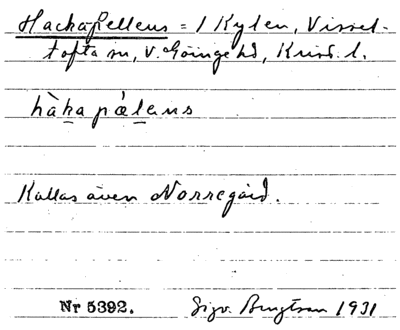 Hackapellens = 1 Kylen, Vissel-
tofta sn, V. Göinge hd, Krist. l.
hàkapælens
Kallas även Norregård.
Nr 5392. Sigv. Bengtson 1931